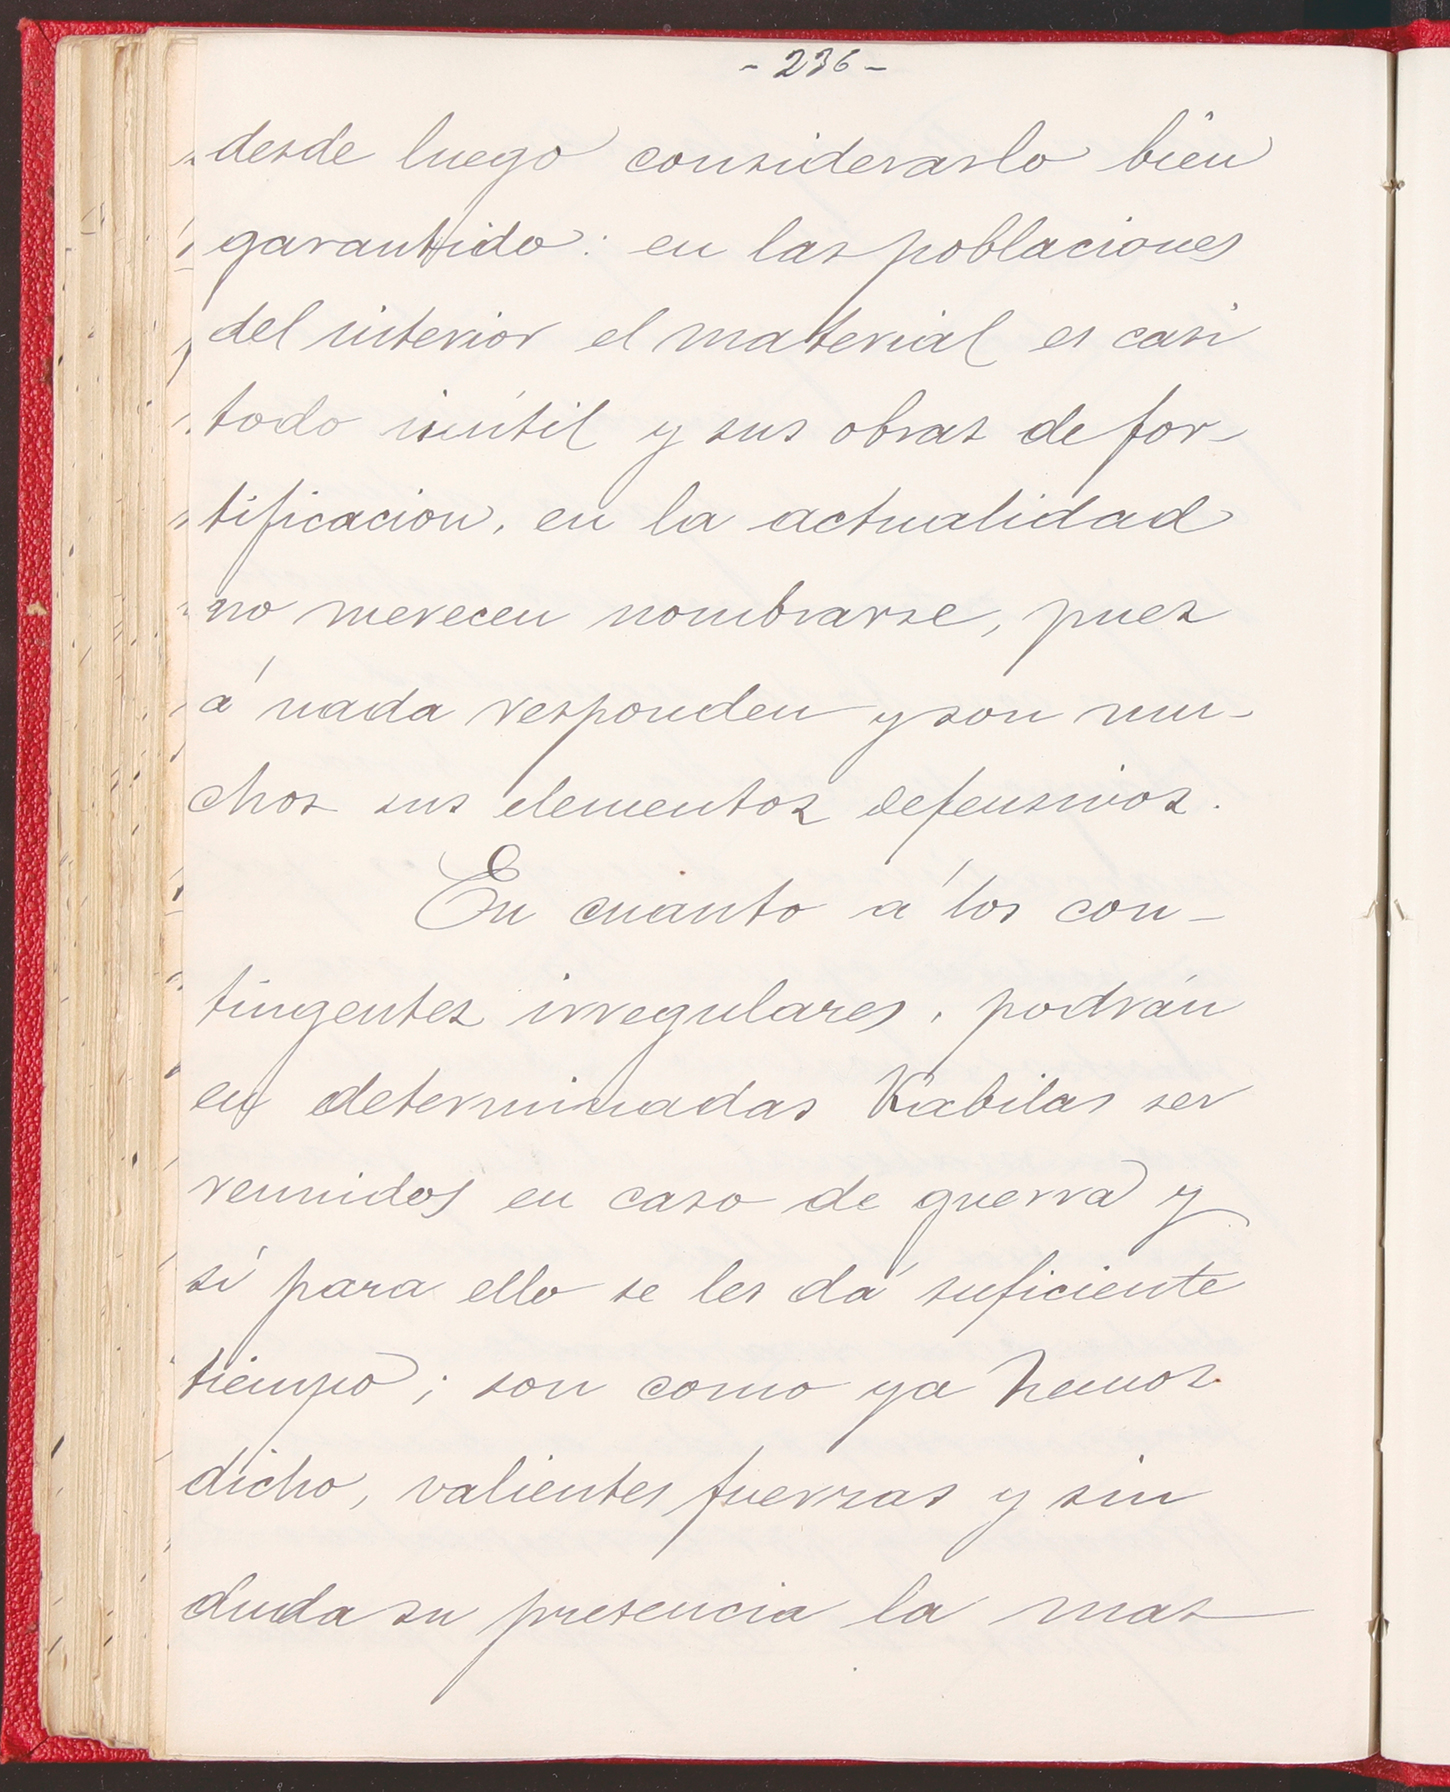 - 236 -
desde luego considerarlo bien
garantido: en las poblaciones
del interior el material es casi
todo inútil y sus obras de for-
tificacion, en la actualidad
no merecen nombrarse, pues
á nada responden y son nu-
chos sus elementos defensivos.
En cuanto á los con-
tingentes irregulares, podrán
en determinadas Kabilas ser
reunidos en caso de guerra y
sí para ello se les dá suficiente
tiempo; son como ya hemos
dicho, valientes fuerzas y sin
duda su presencia la mas